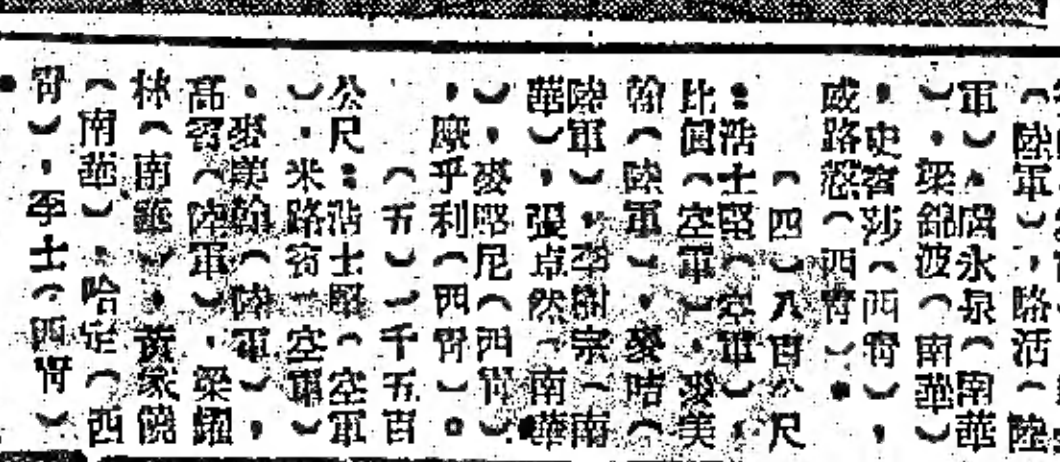 （陸軍），略活（陸
軍）、關永泉（南華
），梁錦波（南華）
，史賓莎（西胥），
威路（西胥）。
（四）八百公尺
：浩士堅（空軍），
比（空軍），麥美
翰（陸軍），麥咭（
陸軍），李樹宗（南
華），張卓然（南華
），麥略尼（西胥）
，摩乎利（西胥）。
（五）一千五百
公尺：浩士堅（空軍
），米路賓（空軍）
，麥美翰（陸軍），
高賓（陸軍），梁耀
林（南華），黃家饒
（南華），哈定（西
胥），李士（西胥）
。